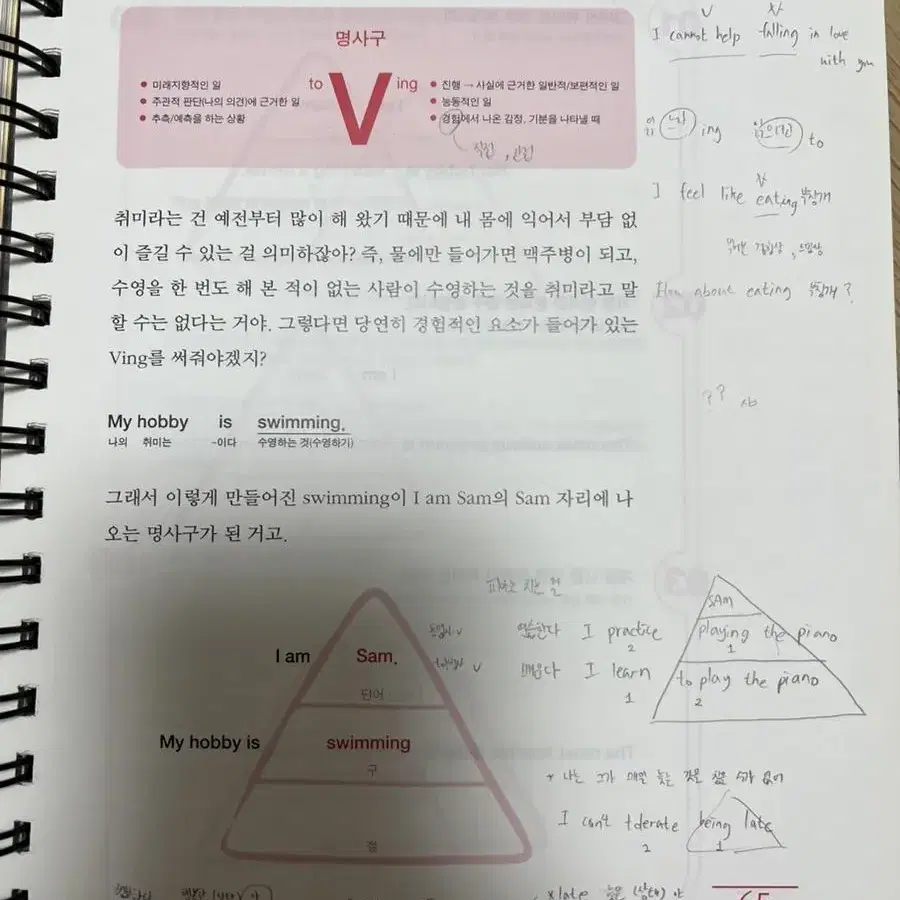 명사구
to V ing
● 미래지향적인 일
● 주관적 판단(나의 의견)에 근거한 일
● 추측/예측을 하는 상황
● 진행 → 사실에 근거한 일반적/보편적인 일
● 능동적인 일
● 경험에서 나온 감정, 기분을 나타낼 때
I cannot help falling in love
with you
ing
to
I feel like eating 부침개
How about eating 부침개?
취미라는 건 예전부터 많이 해 왔기 때문에 내 몸에 익어서 부담 없
이 즐길 수 있는 걸 의미하잖아? 즉, 물에만 들어가면 맥주병이 되고,
수영을 한 번도 해 본 적이 없는 사람이 수영하는 것을 취미라고 말
할 수는 없다는 거야. 그렇다면 당연히 경험적인 요소가 들어가 있는
Ving를 써줘야겠지?
My hobby is swimming.
나의 취미는 ~이다 수영하는 것(수영하기)
그래서 이렇게 만들어진 swimming이 I am Sam의 Sam 자리에 나
오는 명사구가 된 거고.
I am Sam.
단어
My hobby is swimming
구
절
피아노 치는 걸
연습한다 I practice
2
배운다 I learn
1
SAM
playing the piano
1
to play the piano
2
* 나는 그가 매일 늦는 것을 참을 수가 없어
I can't tolerate being late
2 1
*late 늦은 (상태)
65